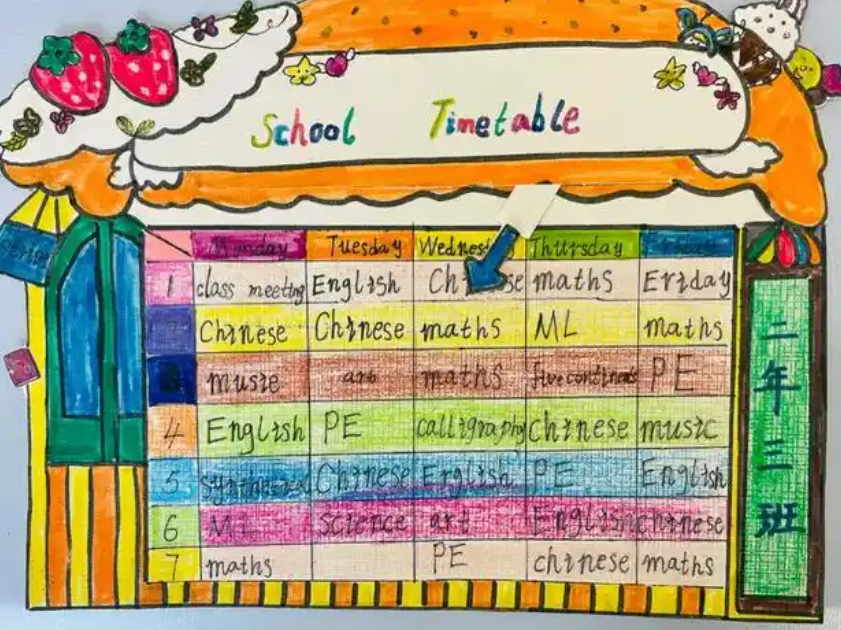 School Timetable
Monday Tuesday Wednes Thursday
1 class meeting English Ch se maths Eriday
Chinese Chinese maths ML maths
3 music art maths five continents PE
4 English PE calligraphy chinese music
5 Chinese English PE English
6 ML science art English chinese
7 maths PE chinese maths
二年三班